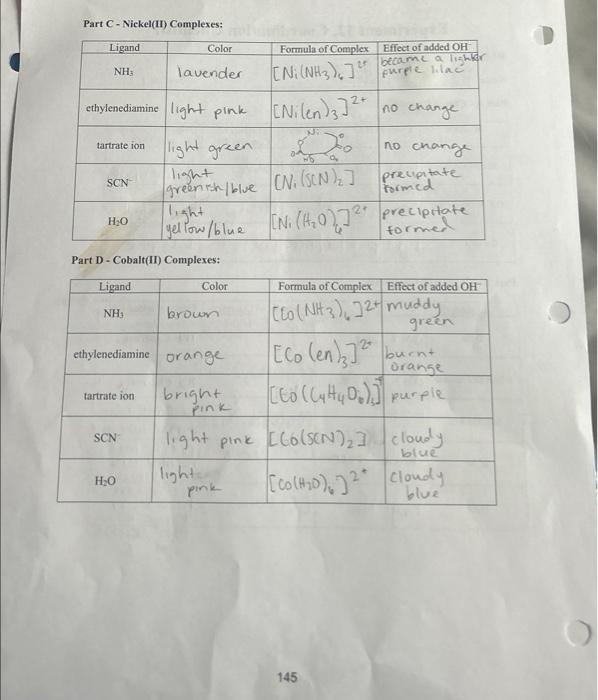 Part C - Nickel(II) Complexes:
Ligand Color Formula of Complex Effect of added OH⁻
NH₃ lavender [Ni(NH₃)₆]²⁺ became a lighter
purple lilac
ethylenediamine light pink [Ni(en)₃]²⁺ no change
tartrate ion light green Ni no change
SCN⁻ light
greenish/blue [Ni(SCN)₂] precipitate
formed
H₂O light
yellow/blue [Ni(H₂O)₆]²⁺ precipitate
formed
Part D - Cobalt(II) Complexes:
Ligand Color Formula of Complex Effect of added OH⁻
NH₃ brown [Co(NH₃)₆]²⁺ muddy
green
ethylenediamine orange [Co(en)₃]²⁺ burnt
orange
tartrate ion bright
pink purple
SCN⁻ light pink [Co(SCN)₂] cloudy
blue
H₂O light
pink [Co(H₂O)₆]²⁺ cloudy
blue
145